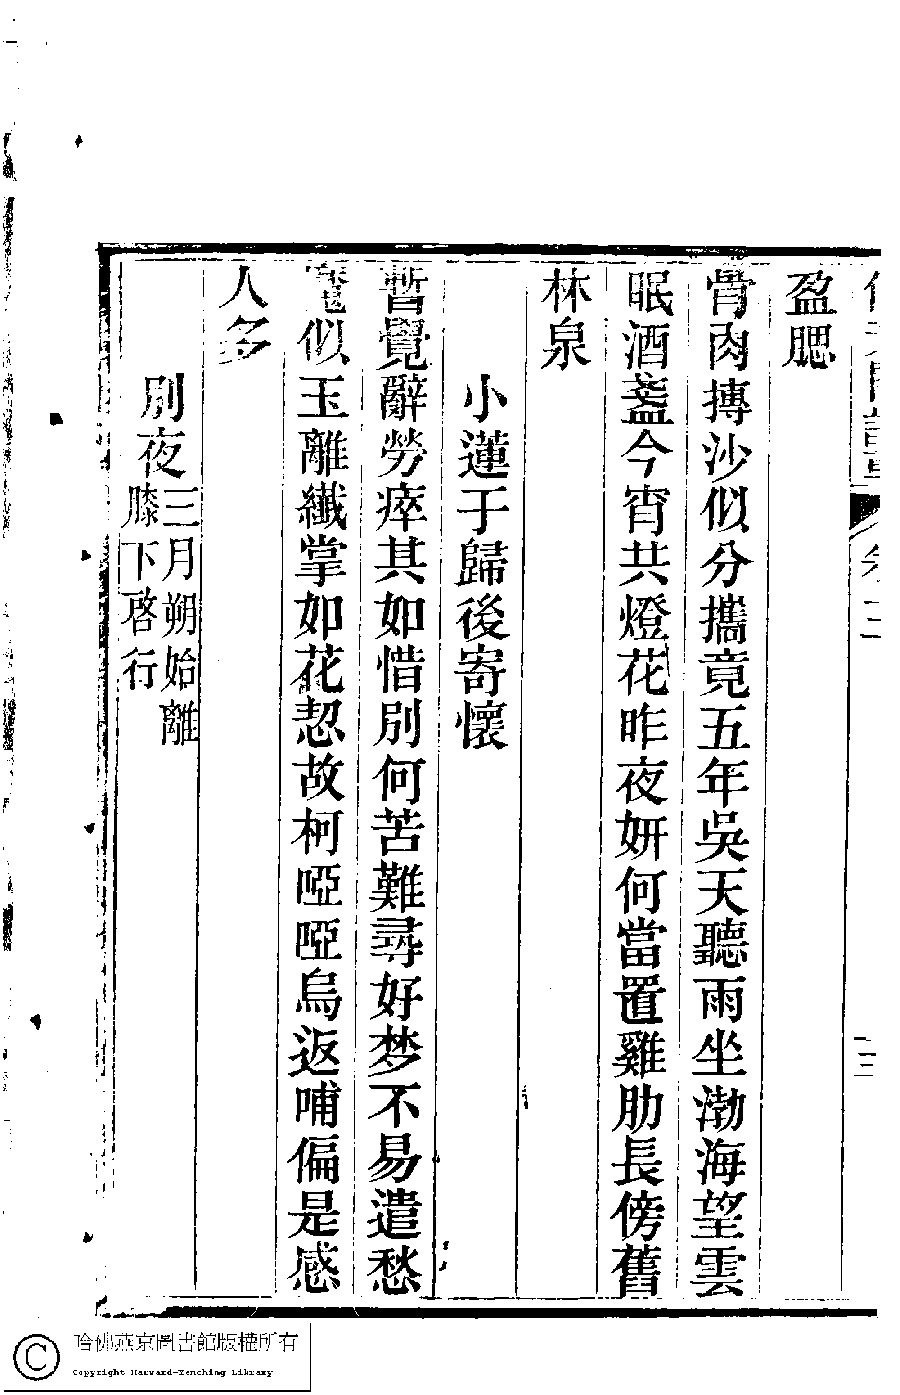 盈腮
骨肉摶沙似分攜竟五年吳天聽雨坐渤海望雲
眠酒盞今宵共燈花昨夜妍何當置雞肋長傍舊
林泉
小蓮于歸後寄懷
暫覺辭勞瘁其如惜別何苦難尋好梦不易遣愁
似玉離纖掌如花恝故柯啞啞烏返哺偏是感
人多
別夜三月朔始離
膝下啓行
三
哈佛燕京圖書館版權所有
Copyright Harvard-Yenching Library